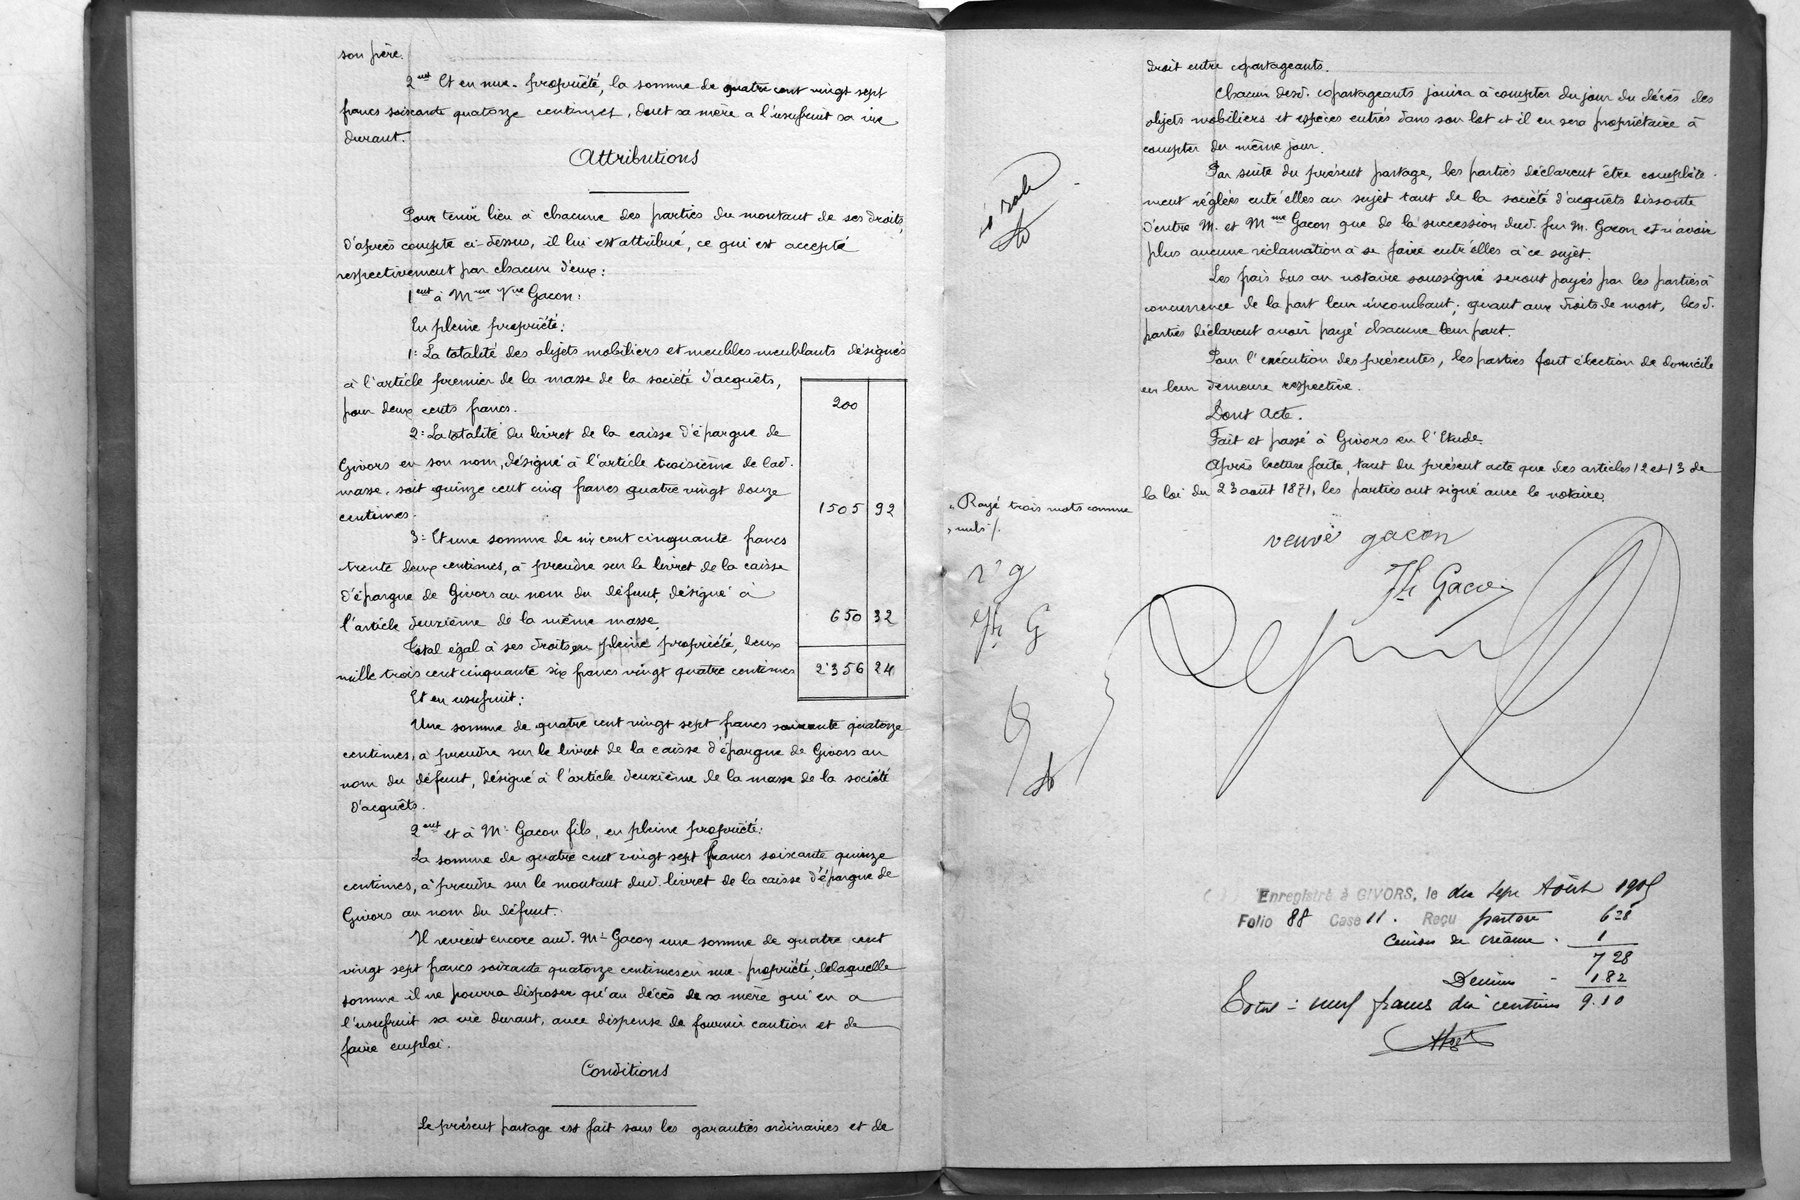 son père.
2ent Et en nue-propriété, la somme de quatre cent vingt sept
francs soixante quatorze centimes, dont sa mère a l'usufruit sa vie
durant.
Attributions
Pour tenir lieu à chacune des parties du montant de ses droits,
d'après compte ci-dessus, il lui est attribué, ce qui est accepté
respectivement par chacun d'eux:
1ent à Mme Vve Gacon:
En pleine propriété:
1: La totalité des objets mobiliers et meubles meublants désignés
à l'article premier de la masse de la société d'acquêts,
pour deux cents francs. 200
2: La totalité du livret de la caisse d'épargne de
Givors en son nom, désigné à l'article troisième de lad.
masse, soit quinze cent cinq francs quatre vingt douze
centimes. 1505 92
3: Et une somme de six cent cinquante francs
trente deux centimes, à prendre sur le livret de la caisse
d'épargne de Givors au nom du défunt, désigné à
l'article deuxième de la même masse, 650 32
Total égal à ses droits en pleine propriété, deux
mille trois cent cinquante six francs vingt quatre centimes 2356 24
Et en usufruit:
Une somme de quatre cent vingt sept francs soixante quatorze
centimes, à prendre sur le livret de la caisse d'épargne de Givors au
nom du défunt, désigné à l'article deuxième de la masse de la société
d'acquêts.
2ent et à Mr Gacon fils, en pleine propriété:
La somme de quatre cent vingt sept francs soixante quinze
centimes, à prendre sur le montant dud. livret de la caisse d'épargne de
Givors au nom du défunt.
Il revient encore aud. Mr Gacon une somme de quatre cent
vingt sept francs soixante quatorze centimes en nue-propriété, de laquelle
somme il ne pourra disposer qu'au décès de sa mère qui en a
l'usufruit sa vie durant, avec dispense de fournir caution et de
faire emploi.
Conditions
Le présent partage est fait sous les garanties ordinaires et de
droit entre copartageants.
Chacun desd. copartageants jouira à compter du jour du décès des
objets mobiliers et espèces entrés dans son lot et il en sera propriétaire à
compter du même jour.
Par suite du présent partage, les parties déclarent être complète-
ment réglées entr'elles au sujet tant de la société d'acquêts dissoute
d'entre M. et Mme Gacon que de la succession dud. feu M. Gacon et n'avoir
plus aucune réclamation à se faire entr'elles à ce sujet.
Les frais dus au notaire soussigné seront payés par les parties à
concurrence de la part leur incombant; quant aux droits de mort, lesd.
parties déclarent avoir payé chacune leur part.
Pour l'exécution des présentes, les parties font élection de domicile
en leur demeure respective.
Dont acte.
Fait et passé à Givors en l'Etude.
Après lecture faite, tant du présent acte que des articles 12 et 13 de
la loi du 23 août 1871, les parties ont signé avec le notaire.
Rayé trois mots comme
nuls
v g
Jh G
veuve gacon
Jh Gacon
Enregistré à GIVORS, le dix sept Août
Folio 88 Case 11. Reçu partage 6 28
1
7 28
Décimes 1 82
Total: neuf francs dix centimes 9.10